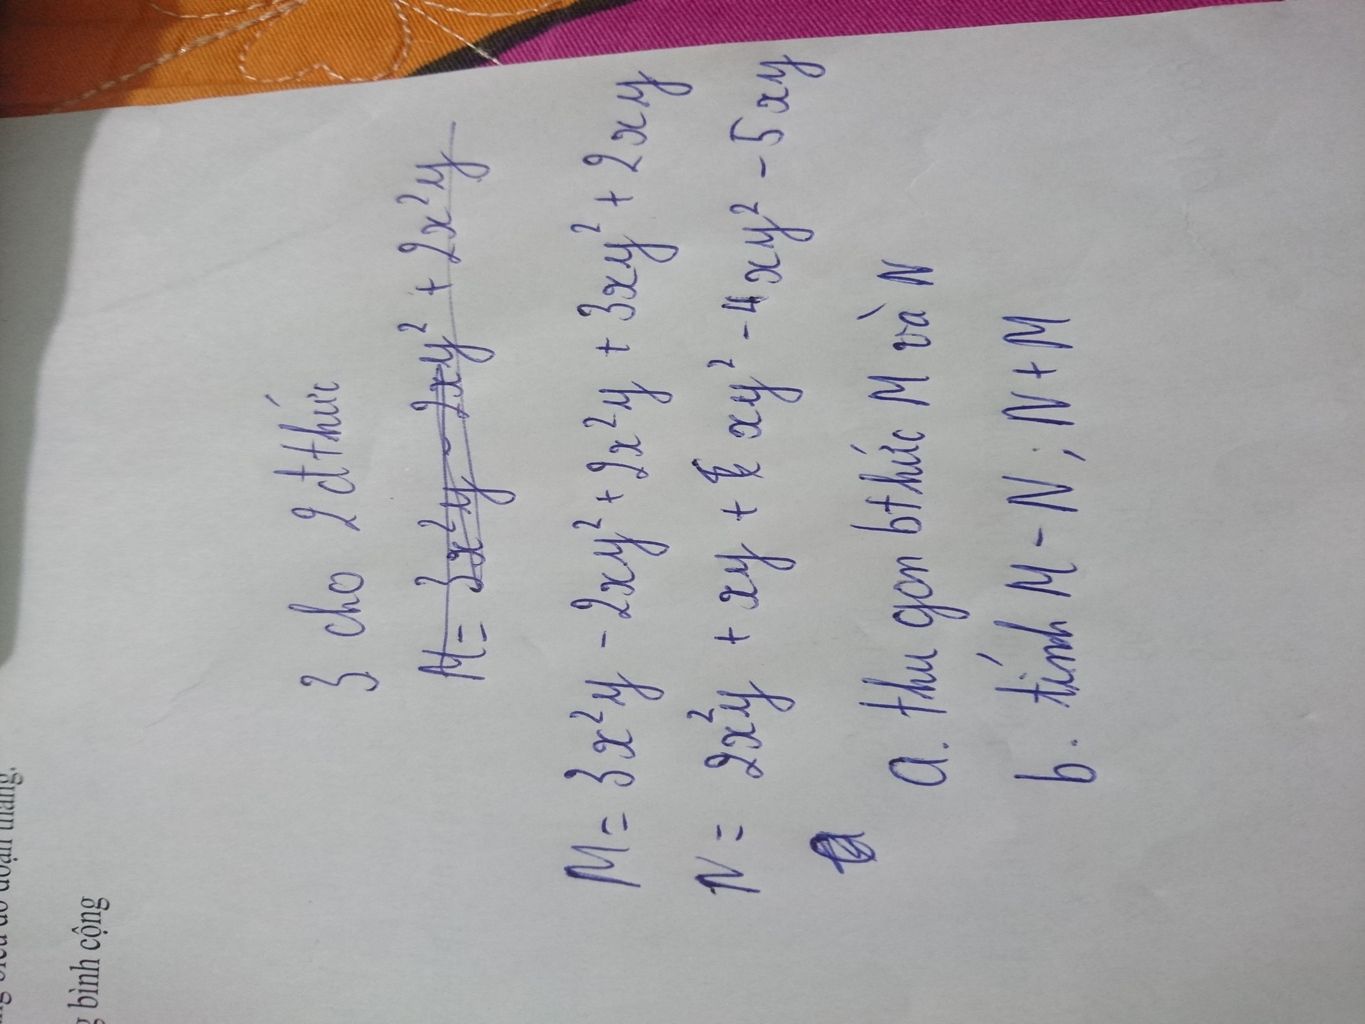 bình cộng
3 cho 2 đthức
M = 3x²y - 2xy² + 2x²y
M = 3x²y - 2xy² + 2x²y + 3xy² + 2xy
N = 2x²y + xy + xy² - 4xy² - 5xy
a. thu gọn bthức M và N
b. tính M - N ; N + M